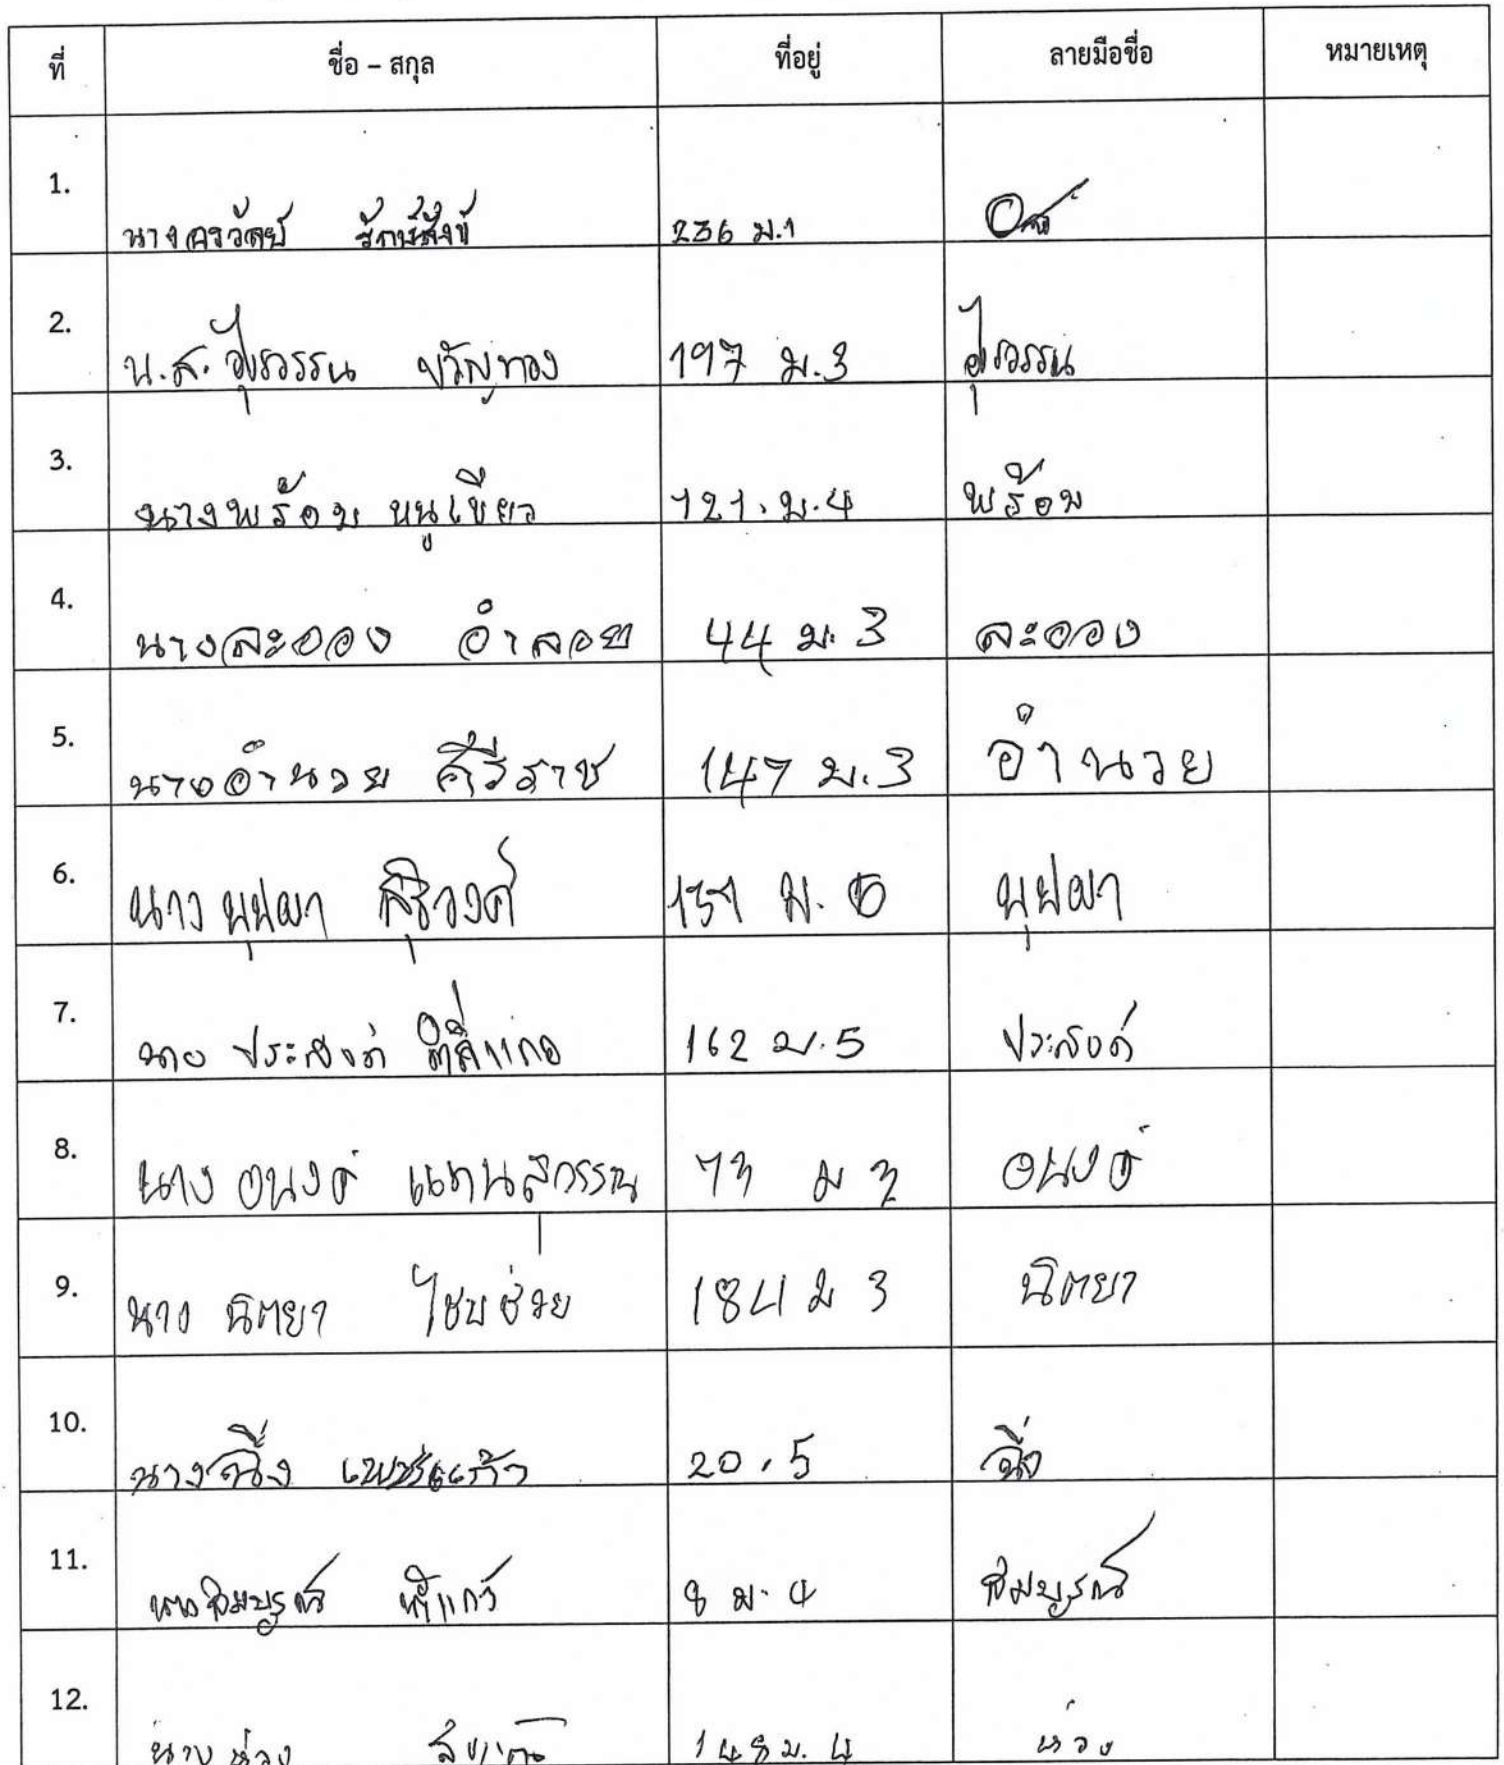 ที่ ชื่อ – สกุล ที่อยู่ ลายมือชื่อ หมายเหตุ
1. นาง 236 ม.1
2. น.ส. อุไรวรรณ ขวัญทอง 197 ม.3 อุไรวรรณ
3. นางพร้อม หนูเขียว 121. ม.4 พร้อม
4. นางละออง อำลอย 44 ม. 3 ละออง
5. นางอำนวย ศิริราช 147 ม.3 อำนวย
6. นาง บุปผา ม. 6 บุปผา
7. นาย ประสงค์ 162 ม.5 ประสงค์
8. นาง อนงค์ แทนสุวรรณ 73 ม อนงค์
9. นาง นิตยา ไชยช่วย 184 ม 3 นิตยา
10. นาง เพชรแก้ว 20 . 5
11. สมบูรณ์ 8 ม. 4 สมบูรณ์
12. นาง ห่วง 148 ม. 4 ห่วง